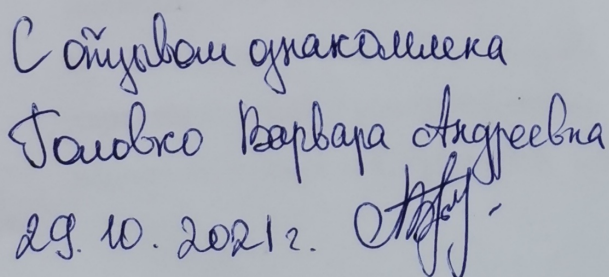 С отзывом ознакомлена
Головко Варвара Андреевна
29.10.2021г.